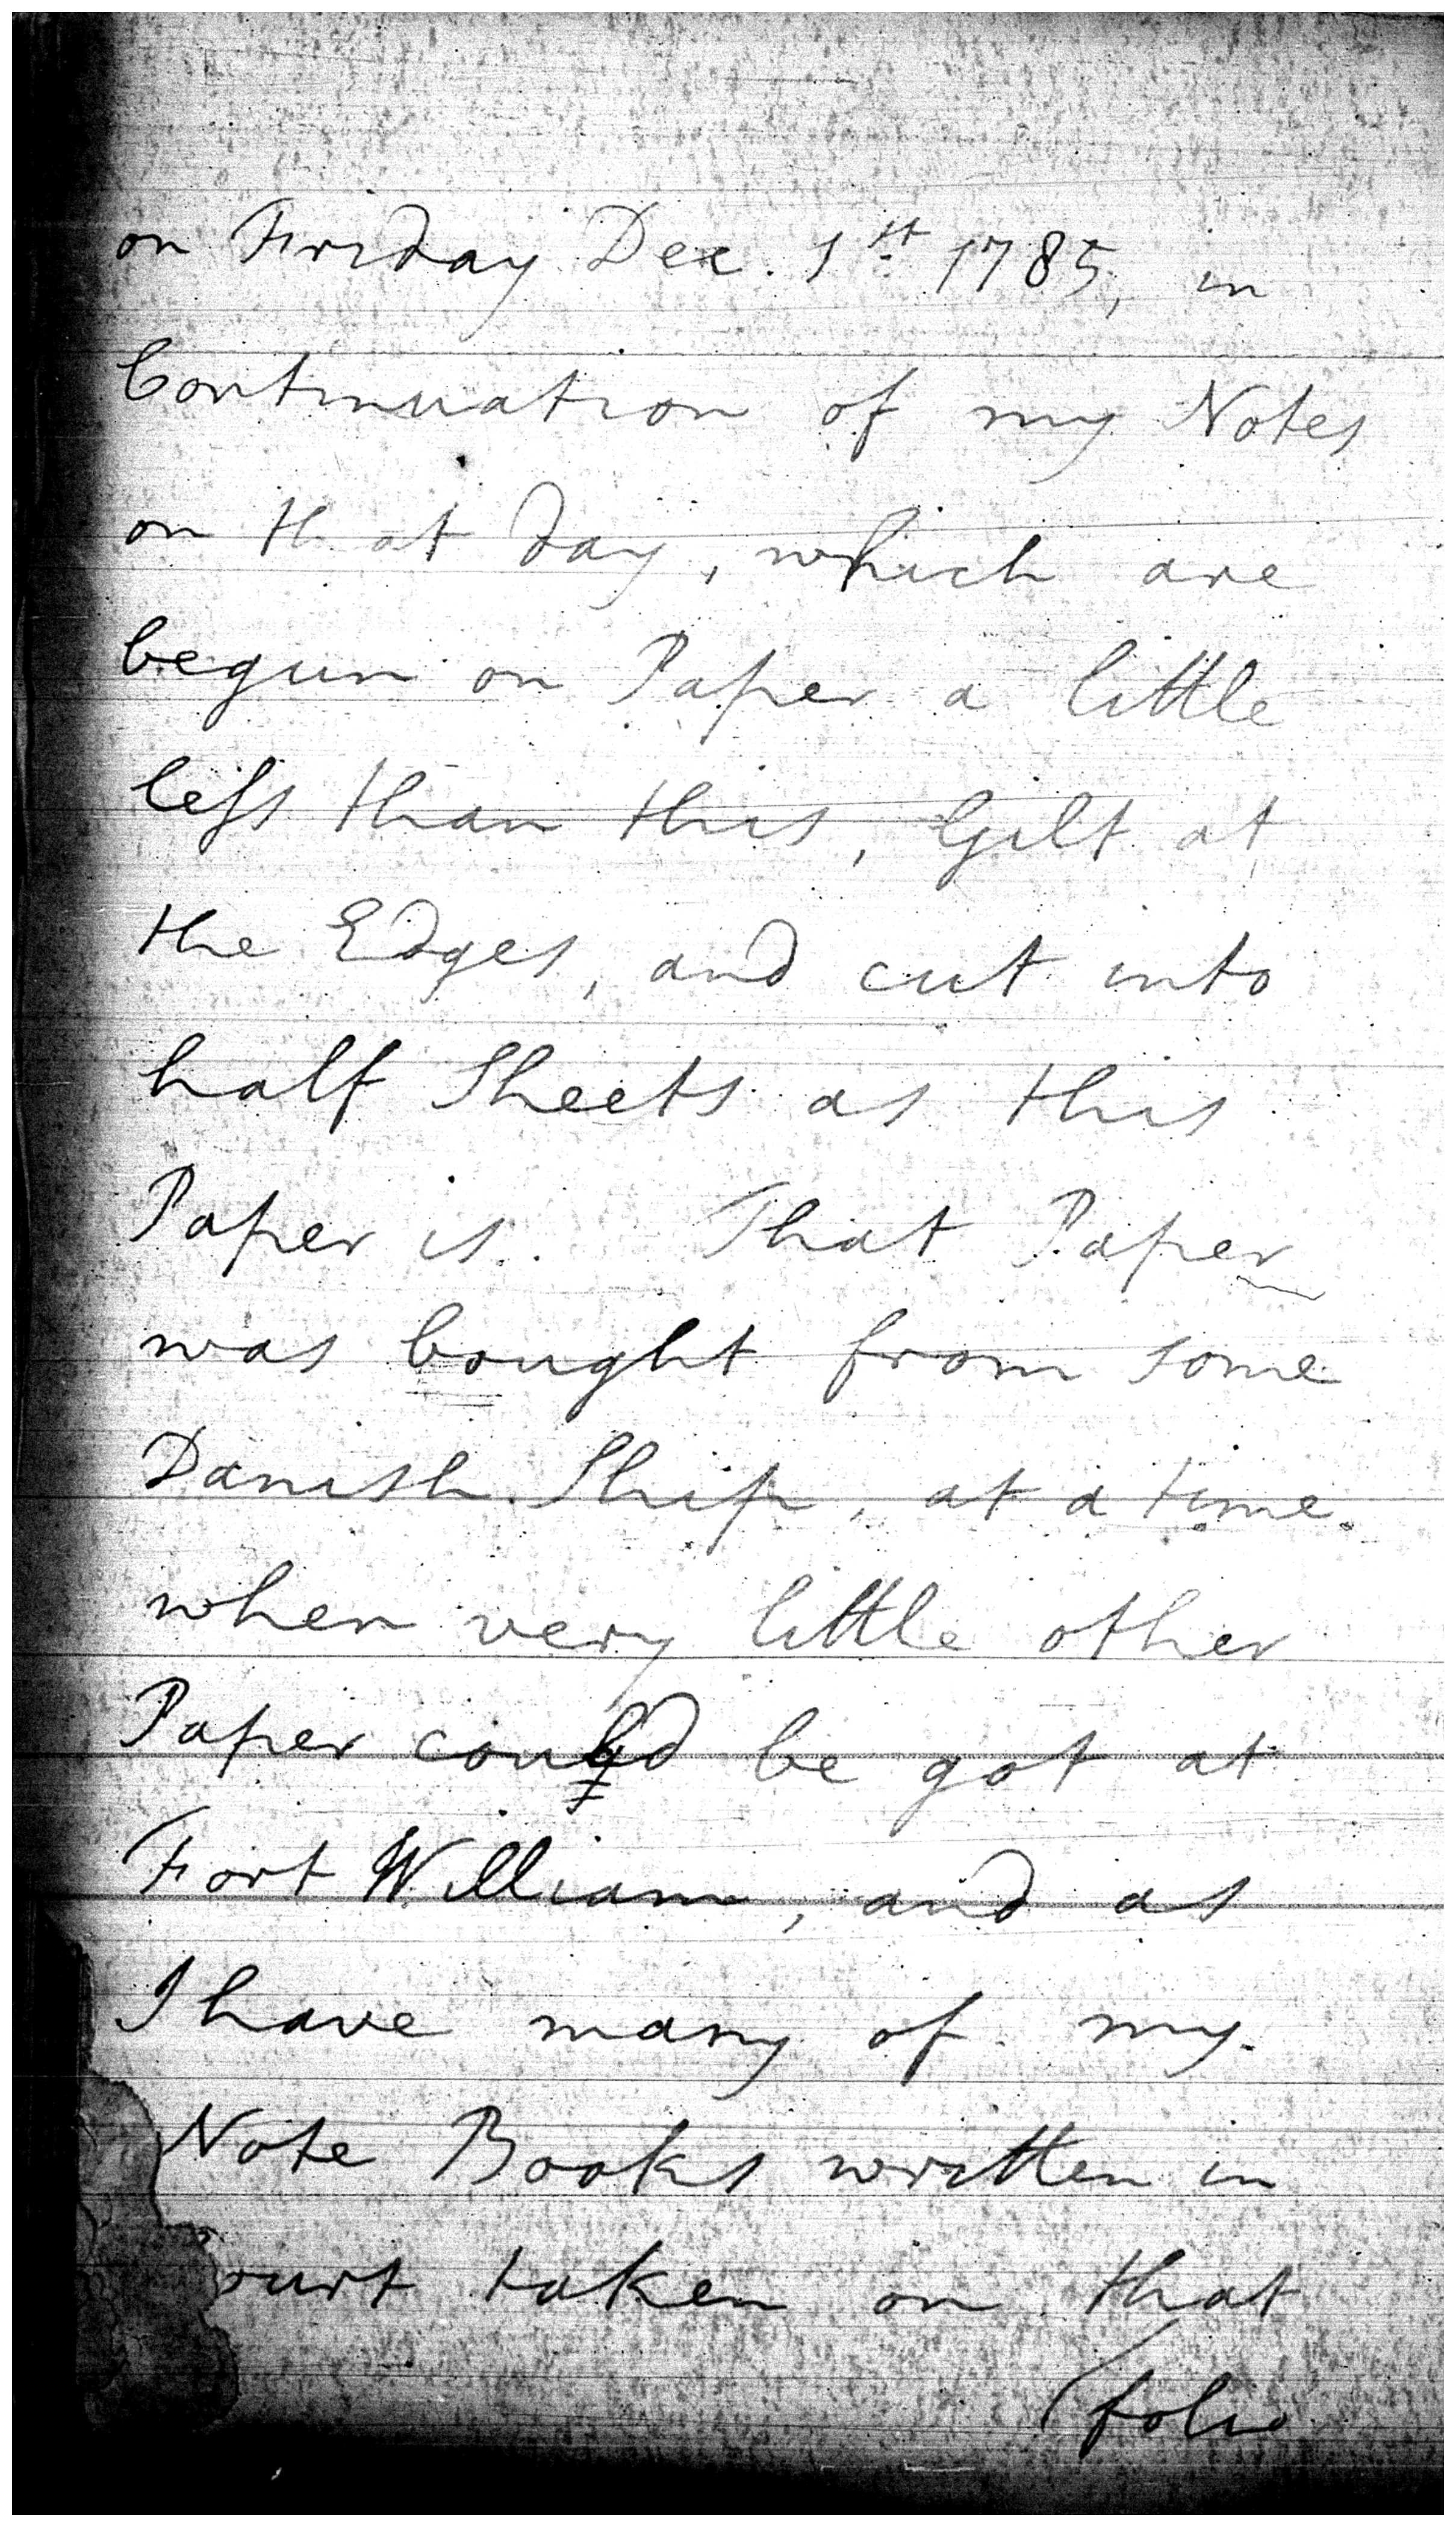 on Friday Dec. 1st 1785, in
Continuation of my Notes
on that day, which are
begun on Paper a little
leſs than this, Gilt at
the Edges, and cut into
half Sheets as this
Paper is. That Paper
was bought from some
Danish Ship, at a time
when very little other
Paper could be got at
Fort William, and as
I have many of my
Note Books written in
ourt taken on that
(folio